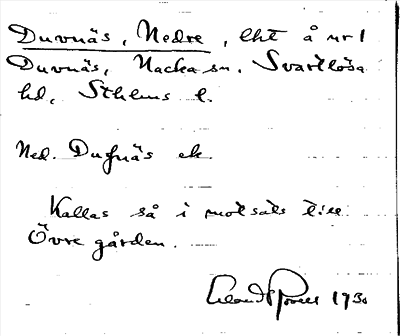 Duvnäs, Nedre, lht å nr 1
Duvnäs, Nacka sn. Svartlösa
hd, Sthlms l.
Ned. Dufnäs ek.
Kallas så i motsats till
Övre gården.
1930